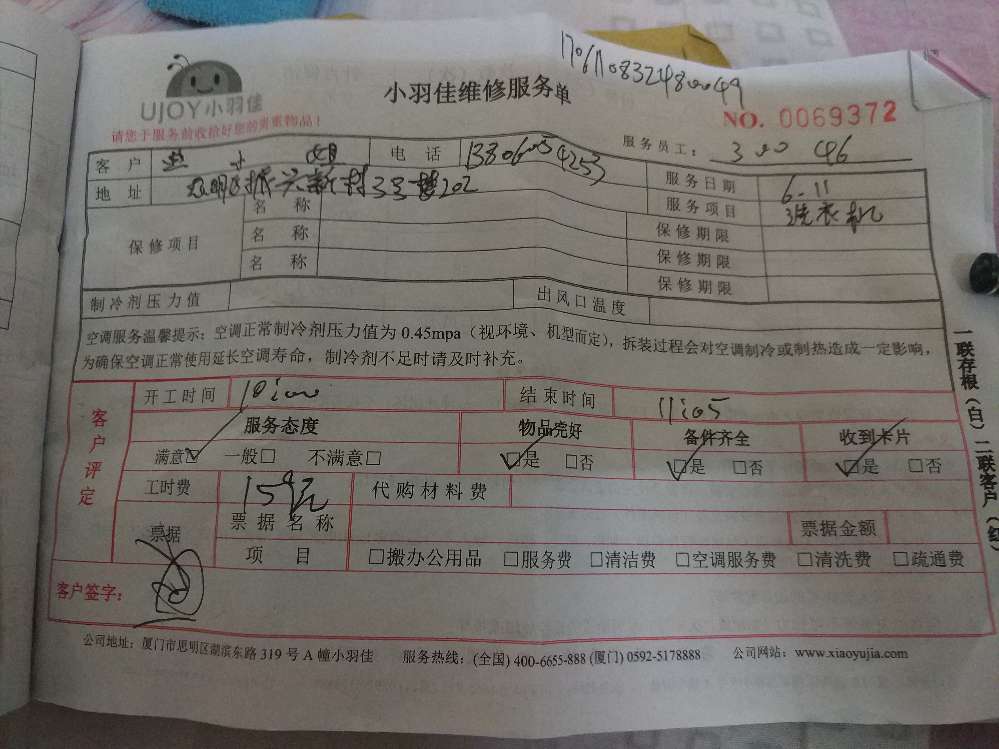 1706110832480049
UJOY小羽佳
小羽佳维修服务单
请您于服务前收拾好您的贵重物品！
NO. 0069372
服务员工： 300 46
客户 小姐 电话 服务日期 6.11
地址 振兴新村33号楼202 服务项目 洗衣机
保修项目 名称 保修期限
名称 保修期限
名称 保修期限
制冷剂压力值 出风口温度
空调服务温馨提示：空调正常制冷剂压力值为 0.45mpa（视环境、机型而定），拆装过程会对空调制冷或制热造成一定影响，
为确保空调正常使用延长空调寿命，制冷剂不足时请及时补充。
客户评定
开工时间 10:00 结束时间 11:05
服务态度 物品完好 备件齐全 收到卡片
满意☑ 一般□ 不满意□ ☑是 □否 ☑是 □否 ☑是 □否
工时费 159元 代购材料费
票据 票据名称 票据金额
项目 □搬办公用品 □服务费 □清洁费 □空调服务费 □清洗费 □疏通费
客户签字：
公司地址：厦门市思明区湖滨东路 319 号 A 幢小羽佳 服务热线：(全国) 400-6655-888 (厦门) 0592-5178888 公司网站：www.xiaoyujia.com
一联存根（白）二联客户（红）